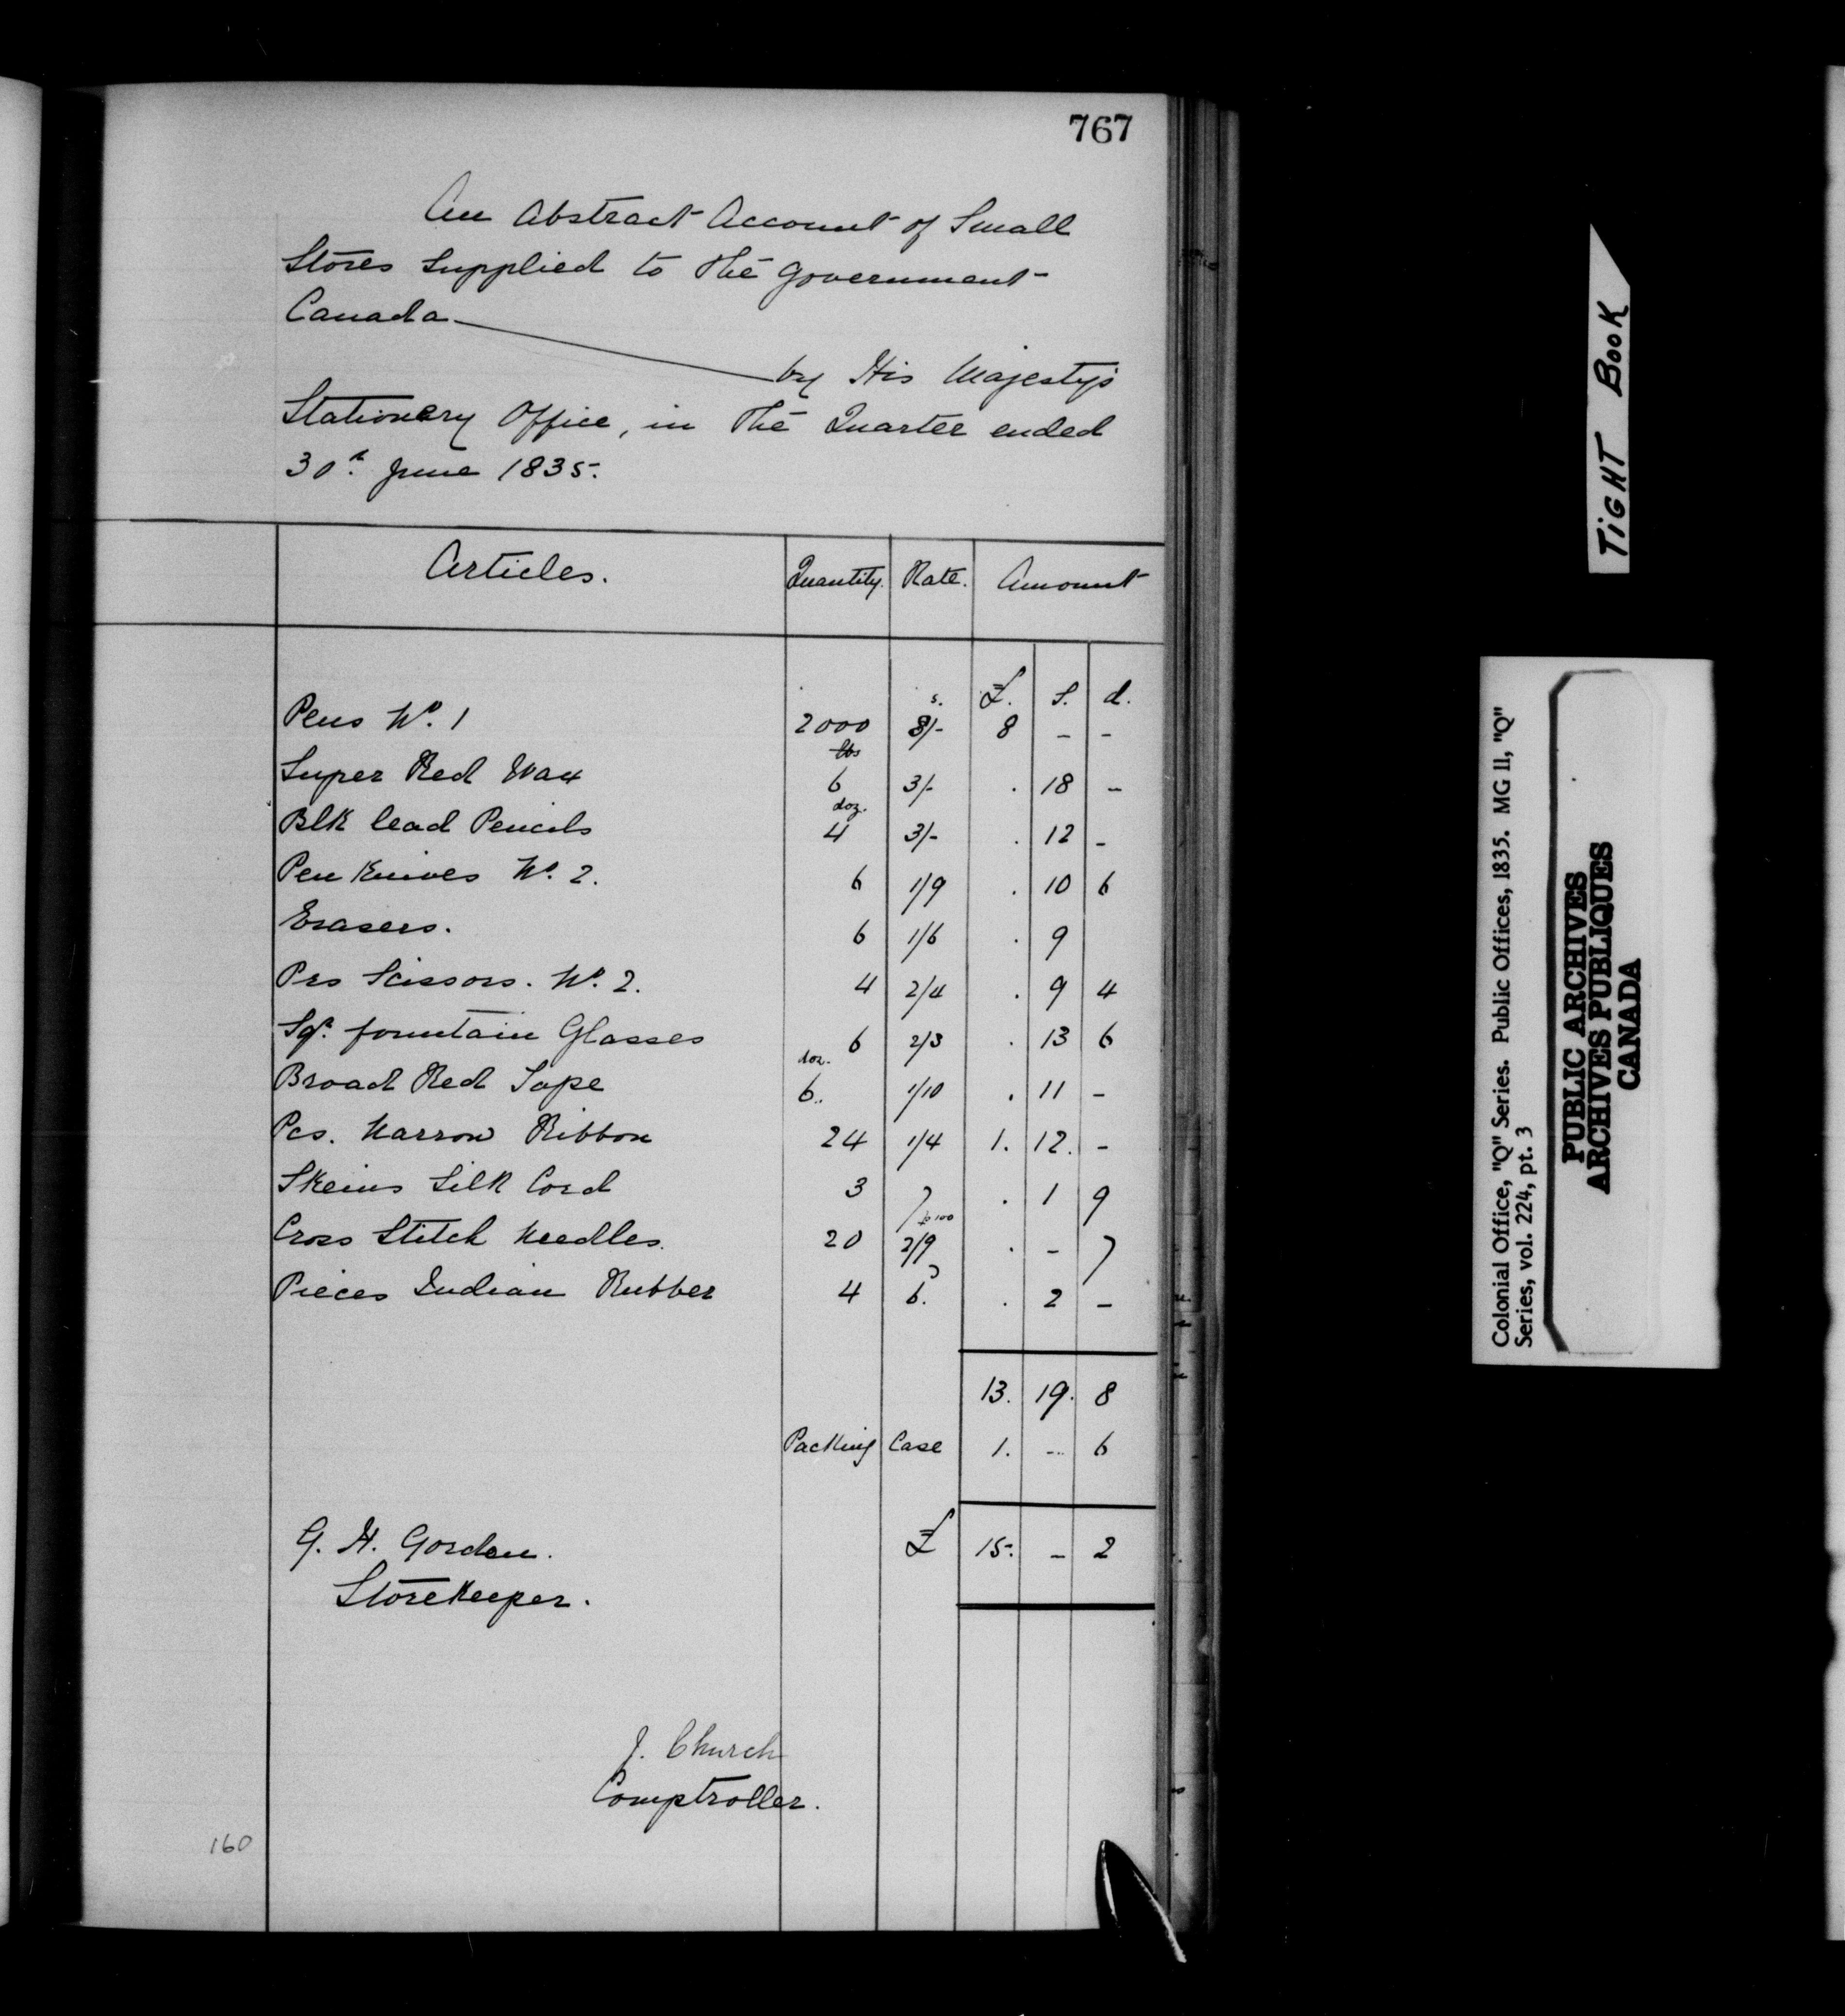 767
An Abstract Account of Small
Stores Supplied to the Government
Canada
by His Majesty's
Stationery Office, in the Quarter ended
30th June 1835.
Articles. Quantity. Rate. Amount
s. £. S. d.
Pens No. 1 2000 8/- 8 - -
Super Red Wax lbs 6 3/- . 18 -
Blk lead Pencils doz. 4 3/- . 12 -
Pen Knives No. 2. 6 1/9 . 10 6
Erasers. 6 1/6 . 9
Prs Scissors. No. 2. 4 2/4 . 9 4
Sqr. fountain Glasses 6 2/3 . 13 6
Broad Red Tape doz. 6.. 1/10 . 11 -
Pcs. Narrow Ribbon 24 1/4 1. 12. -
Skeins Silk Cord 3 7 . 1 9
Cross Stitch Needles. 20 p 100 2/9 . - 7
Pieces Indian Rubber 4 6. . 2 -
13. 19. 8
Packing Case 1. - 6
£ 15. - 2
G. H. Gordon.
Storekeeper.
J. Church
Comptroller.
160
TIGHT BOOK
Colonial Office, "Q" Series. Public Offices, 1835. MG 11, "Q"
Series, vol. 224, pt. 3
PUBLIC ARCHIVES
ARCHIVES PUBLIQUES
CANADA